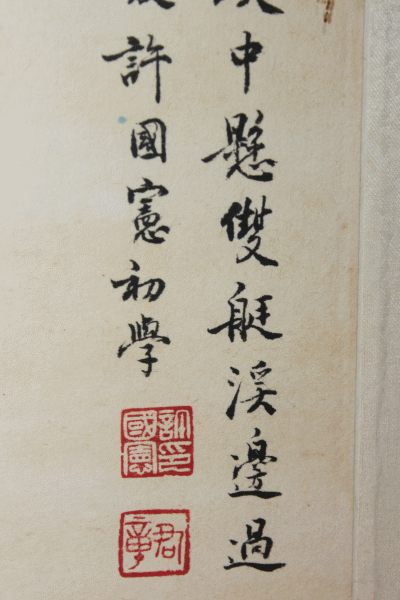 中懸雙艇溪邊過
許國憲初學
許印國憲
君章